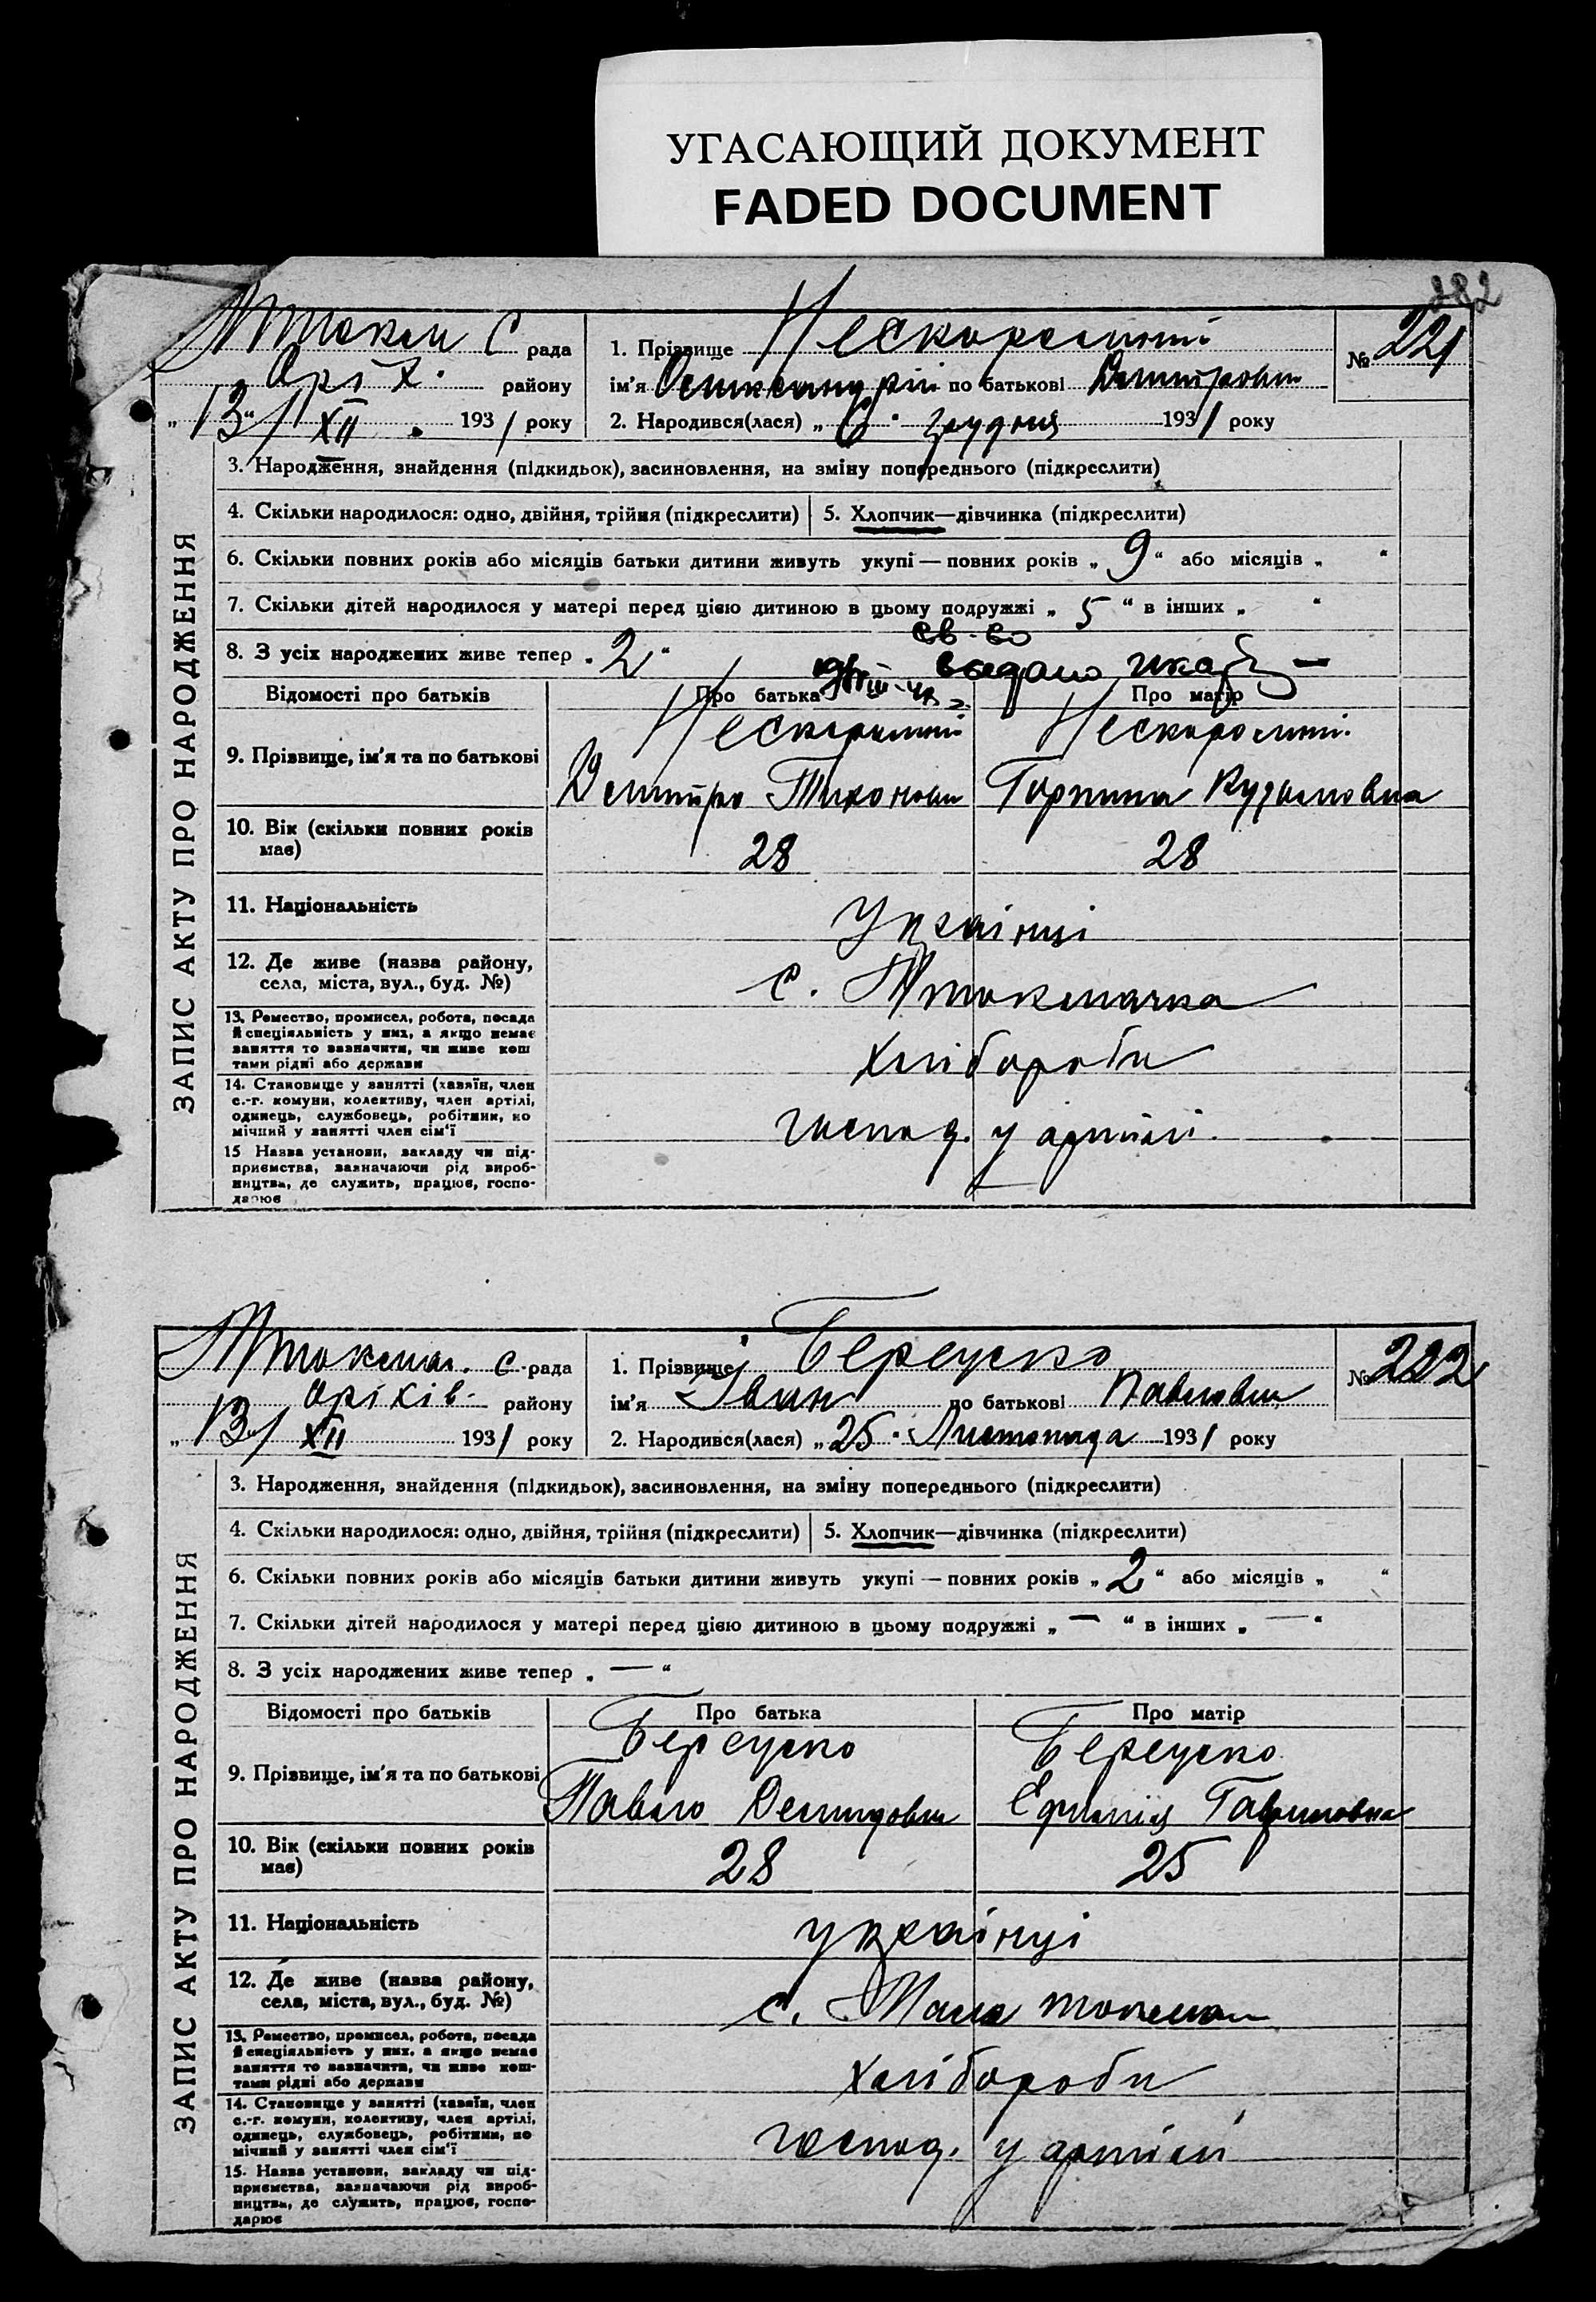 УГАСАЮЩИЙ ДОКУМЕНТ
FADED DOCUMENT
282
с рада
Оріх. району
„13“ XII 1931 року
1. Прізвище
ім'я по батькові
2. Народився(лася) „6“ грудня 1931 року
№ 221
ЗАПИС АКТУ ПРО НАРОДЖЕННЯ
3. Народження, знайдення (підкидьок), засиновлення, на зміну попереднього (підкреслити)
4. Скільки народилося: одно, двійня, трійня (підкреслити) 5. Хлопчик—дівчинка (підкреслити)
6. Скільки повних років або місяців батьки дитини живуть укупі — повних років „9“ або місяців „ “
7. Скільки дітей народилося у матері перед цією дитиною в цьому подружжі „5“ в інших „ “
св-во
8. З усіх народжених живе тепер „2“
Відомості про батьків Про батька Про матір
9. Прізвище, ім'я та по батькові
Дмитро Тихонови Горпина Кузьмовна
10. Вік (скільки повних років має) 28 28
11. Національність Українці
12. Де живе (назва району, села, міста, вул., буд. №) с.
13. Ремество, промисел, робота, посада й спеціяльність у них, а якщо немає заняття то зазначити, чи живе кош тами рідні або держави хлібороби
14. Становище у занятті (хазяїн, член с.-г. комуни, колективу, член артілі, одинець, службовець, робітник, по мічний у занятті член сім'ї господ. у артілі.
15 Назва установи, закладу чи під-приємства, зазначаючи рід вироб-ництва, де служить, працює, госпо-дарює
с. рада
Оріхів. району
„13“ XII 1931 року
1. Прізвище
ім'я Іван по батькові Павлови
2. Народився(лася) „25“ Листопада 1931 року
№ 222
ЗАПИС АКТУ ПРО НАРОДЖЕННЯ
3. Народження, знайдення (підкидьок), засиновлення, на зміну попереднього (підкреслити)
4. Скільки народилося: одно, двійня, трійня (підкреслити) 5. Хлопчик—дівчинка (підкреслити)
6. Скільки повних років або місяців батьки дитини живуть укупі — повних років „2“ або місяців „ “
7. Скільки дітей народилося у матері перед цією дитиною в цьому подружжі „—“ в інших „—“
8. З усіх народжених живе тепер „—“
Відомості про батьків Про батька Про матір
9. Прізвище, ім'я та по батькові
Павло Демидови Гавриловна
10. Вік (скільки повних років має) 28 25
11. Національність українці
12. Де живе (назва району, села, міста, вул., буд. №) с. Мала токмач
13. Ремество, промисел, робота, посада й спеціяльність у них, а якщо немає заняття то зазначити, чи живе кош-тами рідні або держави хлібороби
14. Становище у занятті (хазяїн, член с.-г. комуни, колективу, член артілі, одинець, службовець, робітник, по мічний у занятті член сім'ї господ. у артілі
15. Назва установи, закладу чи під-приємства, зазначаючи рід вироб-ництва, де служить, працює, госпо-дарює